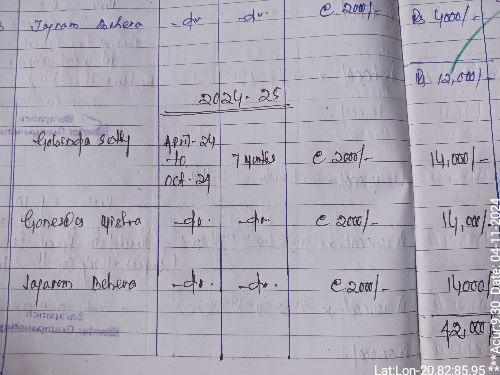 Jayram Behera -do- -do- @ 2000/- Rs 4000/-
Rs 12,000/-
2024-25
Govinda Sethy April-24 to Oct-24 7 Months @ 2000/- 14,000/-
Ganesh Mishra -do- -do- @ 2000/- 14,000/-
Jayaram Behera -do- -do- @ 2000/- 14000/-
42,000/-
Sarapanch
Sarapanch
Lat:Lon-20.82:85.95
***Acur:9.30 Date:04-11-2024